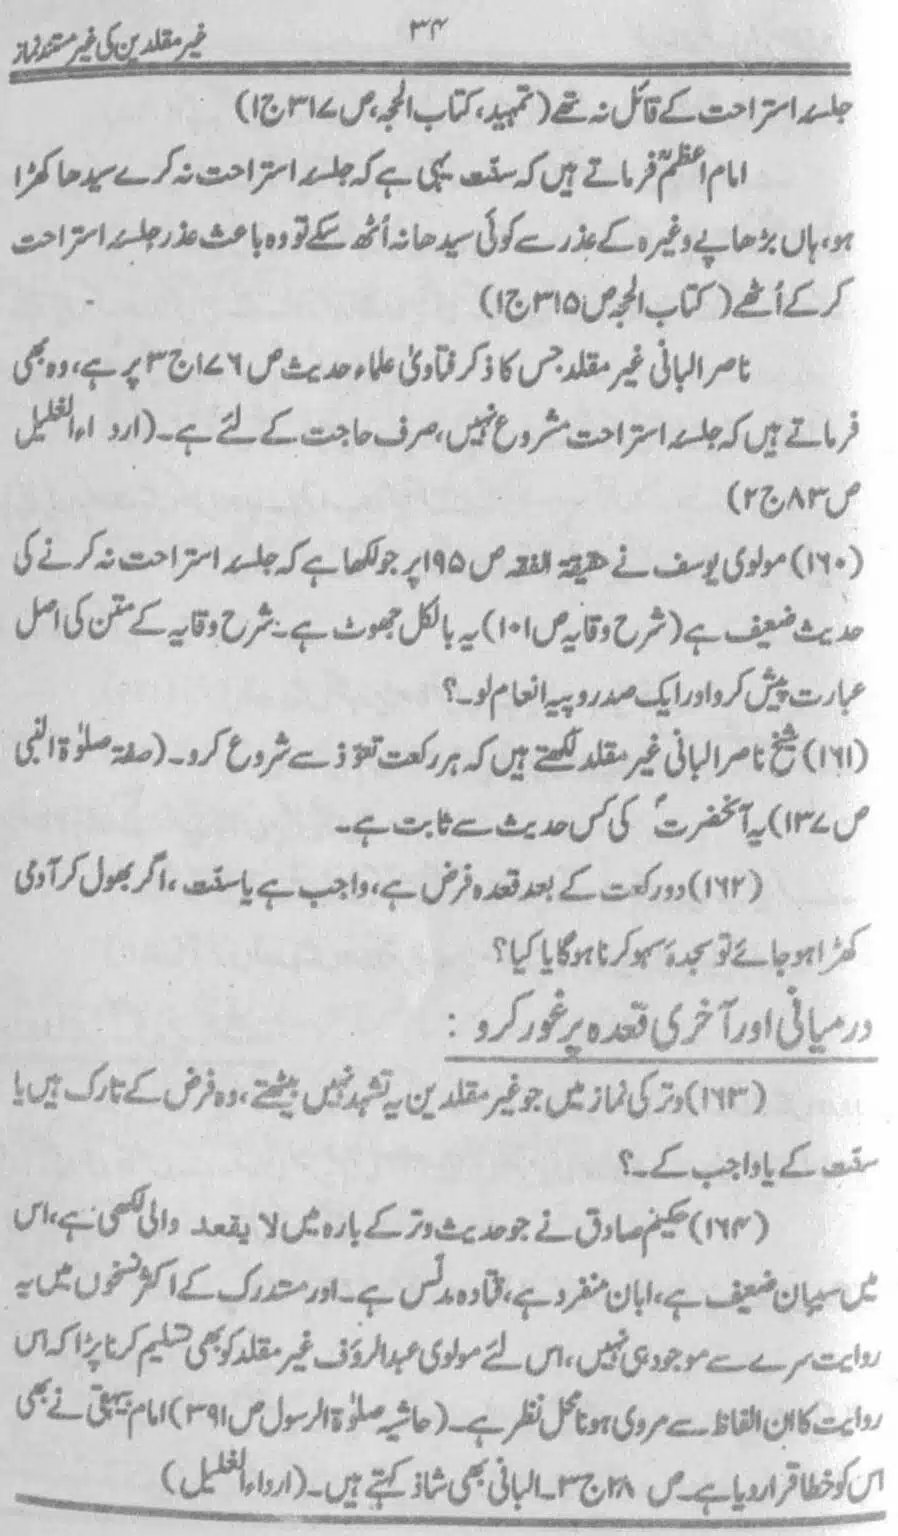 ۳۴
غیر مقلدین کی غیر مستند نماز
جلسۂ استراحت کے قائل نہ تھے (تمہید، کتاب الحجہ، ص ۳۱۷ ج ۱)
امام اعظمؒ فرماتے ہیں کہ سنّت یہی ہے کہ جلسۂ استراحت نہ کرے سیدھا کھڑا
ہو، ہاں بڑھاپے وغیرہ کے عذر سے کوئی سیدھا نہ اُٹھ سکے تو وہ باعث عذر جلسۂ استراحت
کر کے اُٹھے (کتاب الحجہ ص ۳۱۵ ج ۱)
ناصر البانی غیر مقلد جس کا ذکر فتاویٰ علماء حدیث ص ۱۷۶ ج ۳ پر ہے، وہ بھی
فرماتے ہیں کہ جلسۂ استراحت مشروع نہیں، صرف حاجت کے لئے ہے۔ (ارداء الغلیل
ص ۸۳ ج ۲)
(۱۶۰) مولوی یوسف نے حقیقۃ الفقہ ص ۱۹۵ پر جو لکھا ہے کہ جلسۂ استراحت نہ کرنے کی
حدیث ضعیف ہے (شرح وقایہ ص ۱۰۱) یہ بالکل جھوٹ ہے۔ شرح وقایہ کے متن کی اصل
عبارت پیش کرو اور ایک صد روپیہ انعام لو۔؟
(۱۶۱) شیخ ناصر البانی غیر مقلد لکھتے ہیں کہ ہر رکعت تعوّذ سے شروع کرو۔ (صفۃ صلوٰۃ النبی
ص ۱۳۷) یہ آنحضرتؐ کی کس حدیث سے ثابت ہے۔
(۱۶۲) دو رکعت کے بعد قعدہ فرض ہے، واجب ہے یا سنّت، اگر بھول کر آدمی
کھڑا ہو جائے تو سجدۂ سہو کرنا ہوگا یا کیا؟
درمیانی اور آخری قعدہ پر غور کرو :
(۱۶۳) وتر کی نماز میں جو غیر مقلدین یہ تشہد نہیں بیٹھتے، وہ فرض کے تارک ہیں یا
سنّت کے یا واجب کے۔؟
(۱۶۴) حکیم صادق نے جو حدیث وتر کے بارہ میں لا یقعد والی لکھی ہے، اس
میں سیبان ضعیف ہے، ابان منفرد ہے، قتادہ مدلّس ہے۔ اور مستدرک کے اکثر نسخوں میں یہ
روایت سرے سے موجود ہی نہیں، اس لئے مولوی عبدالرؤف غیر مقلد کو بھی تسلیم کرنا پڑا کہ اس
روایت کا ان الفاظ سے مروی ہونا محل نظر ہے۔ (حاشیہ صلوٰۃ الرسول ص ۳۹۱) امام بیہقیؒ نے بھی
اس کو خطا قرار دیا ہے۔ ص ۲۸ ج ۳۔ البانی بھی شاذ کہتے ہیں۔ (ارداء الغلیل)